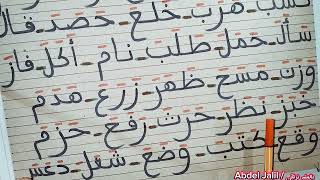 هرب - خلع - حصد - قال
سأل - حمل - طلب - نام - أكل - فاز
وزن - مسح - ظهر - زرع - هدم
خبز - نظر - حرث - رفع - حزم
وقع - كتب - وضع - شغل - دعس
Abdel Jalil /